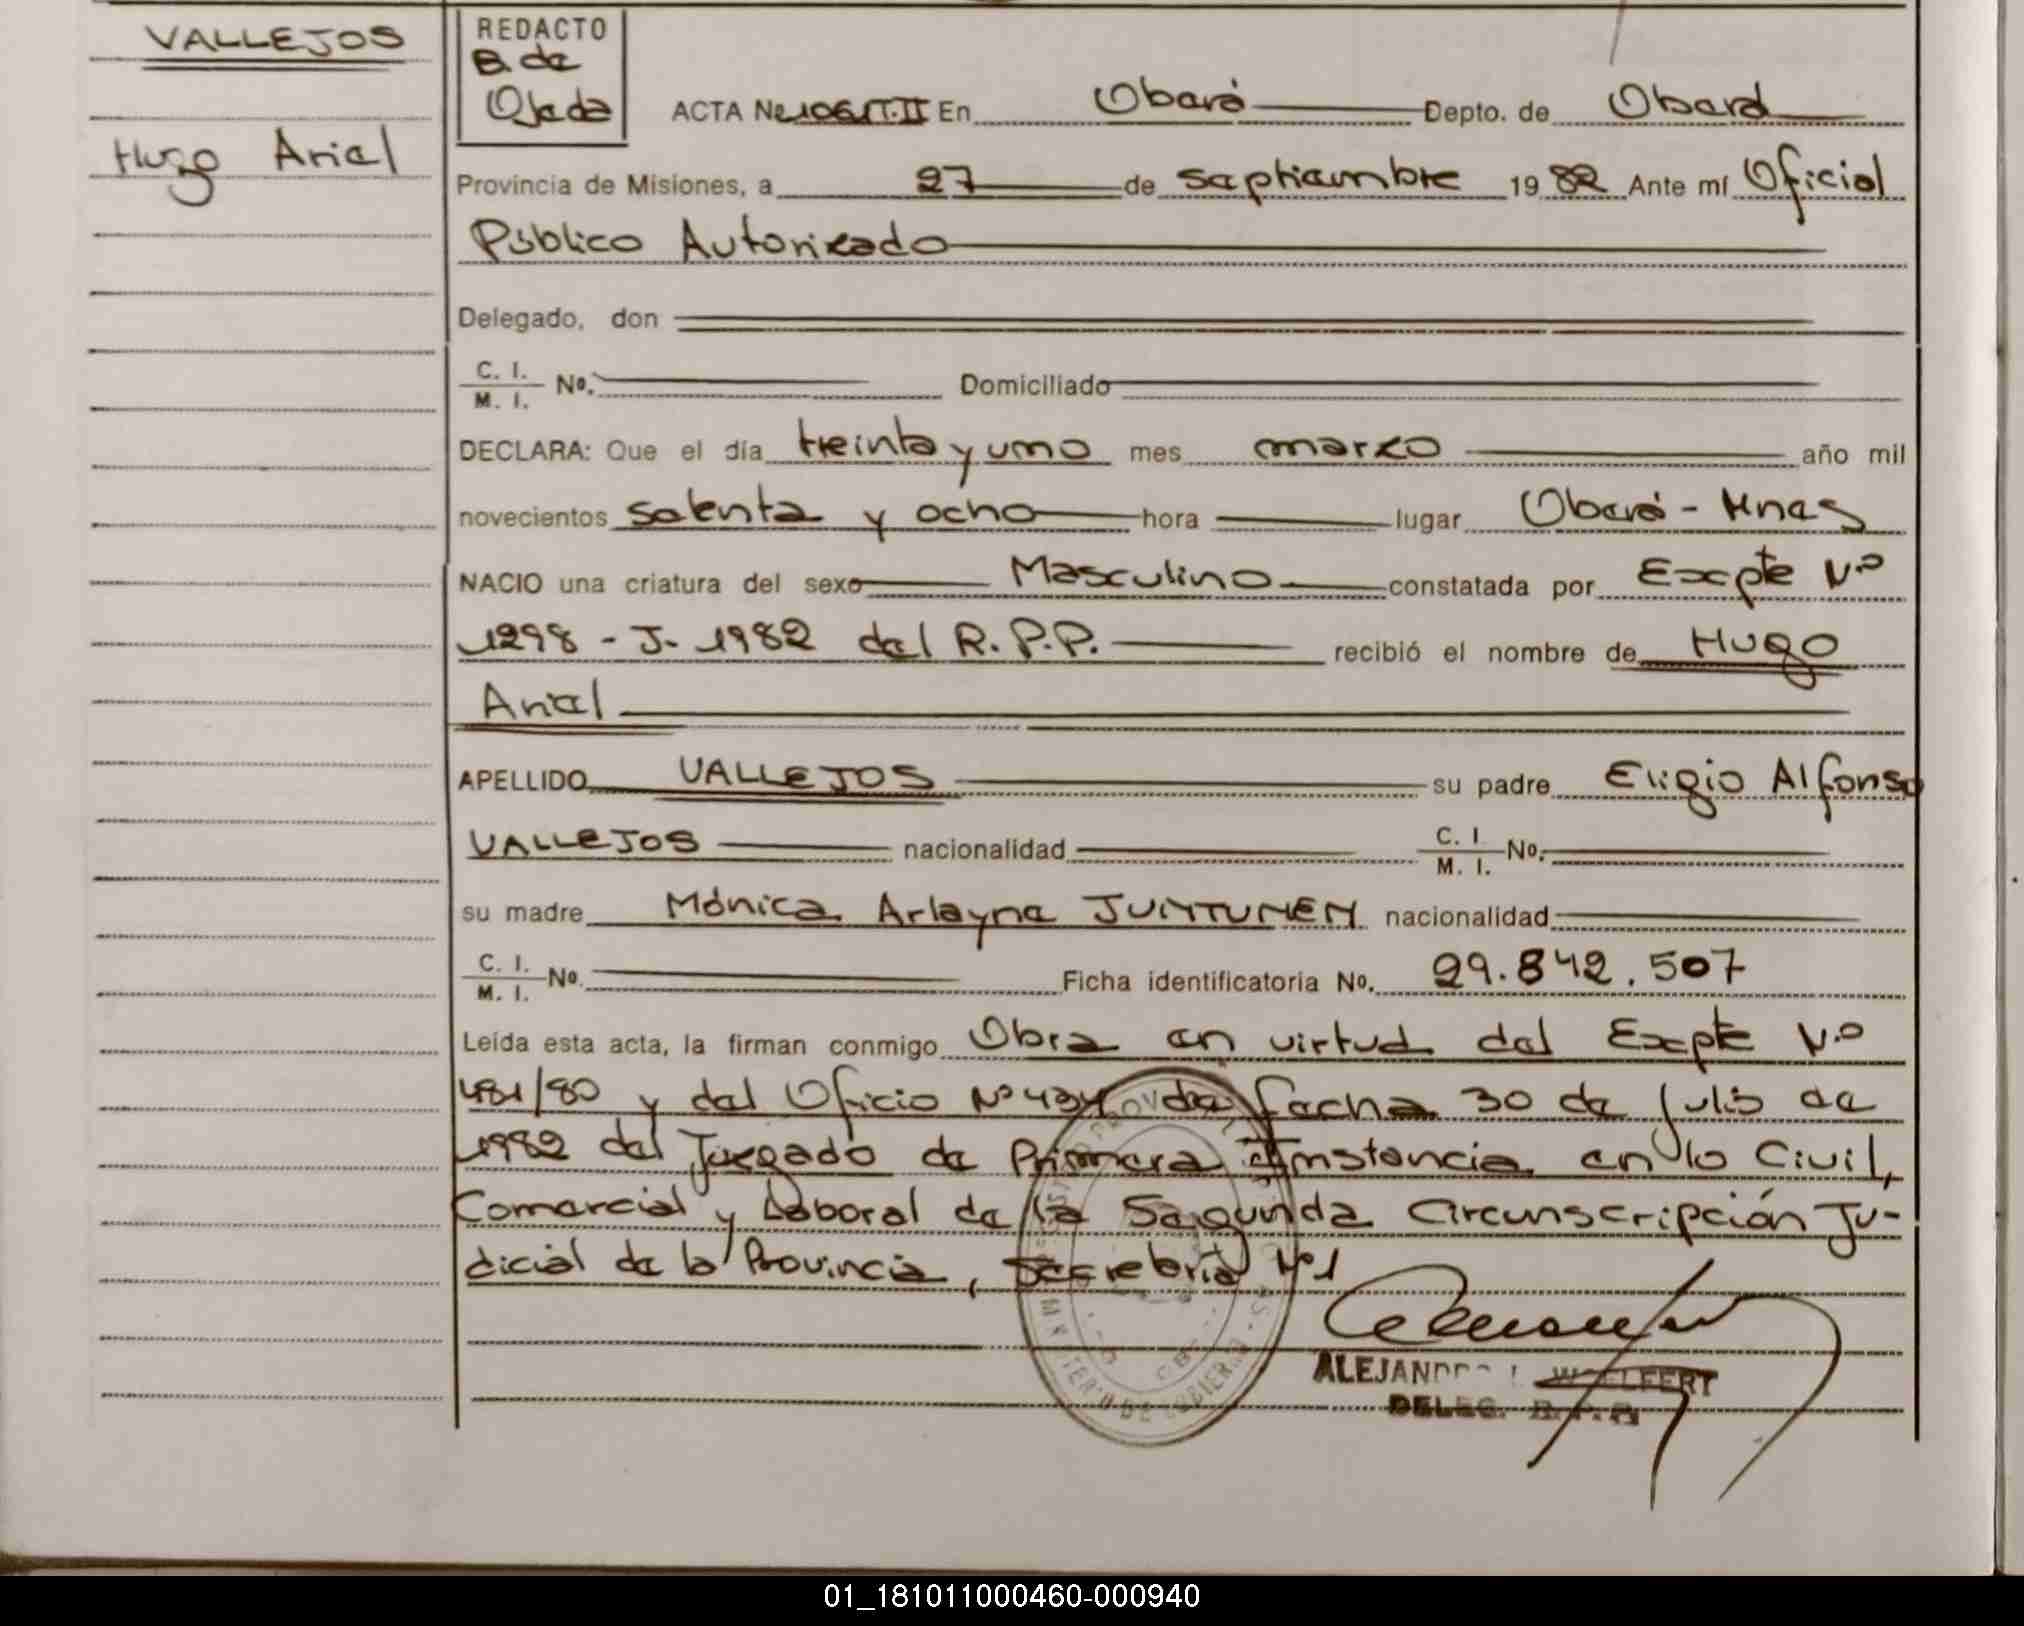 VALLEJOS
Hugo Ariel
REDACTO
B de
Ojeda
ACTA No 106 T.II En Oberá Depto. de Oberá
Provincia de Misiones, a 27 de septiembre 19 82 Ante mí Oficial
Público Autorizado
Delegado, don
C. I.
M. I. No. Domiciliado
DECLARA: Que el día treinta y uno mes marzo año mil
novecientos setenta y ocho hora lugar Oberá - Mnes
NACIO una criatura del sexo Masculino constatada por Expte Nº
1298 - J- 1982 del R.P.P. recibió el nombre de Hugo
Ariel
APELLIDO VALLEJOS su padre Eligio Alfonso
VALLEJOS nacionalidad C. I.
M. I. No.
su madre Mónica Arlayne JUNTUNEN nacionalidad
C. I.
M. I. No. Ficha identificatoria No. 29.842.507
Leída esta acta, la firman conmigo Obra en virtud del Expte Nº
481/80 y del Oficio Nº 434 de fecha 30 de julio de
1982 del Juzgado de Primera Instancia en lo Civil,
Comercial y Laboral de la Segunda Circunscripción Ju-
dicial de la Provincia, Secretaria Nº1
ALEJANDRO WOELFERT
DELEG. R.P.P.
01_181011000460-000940